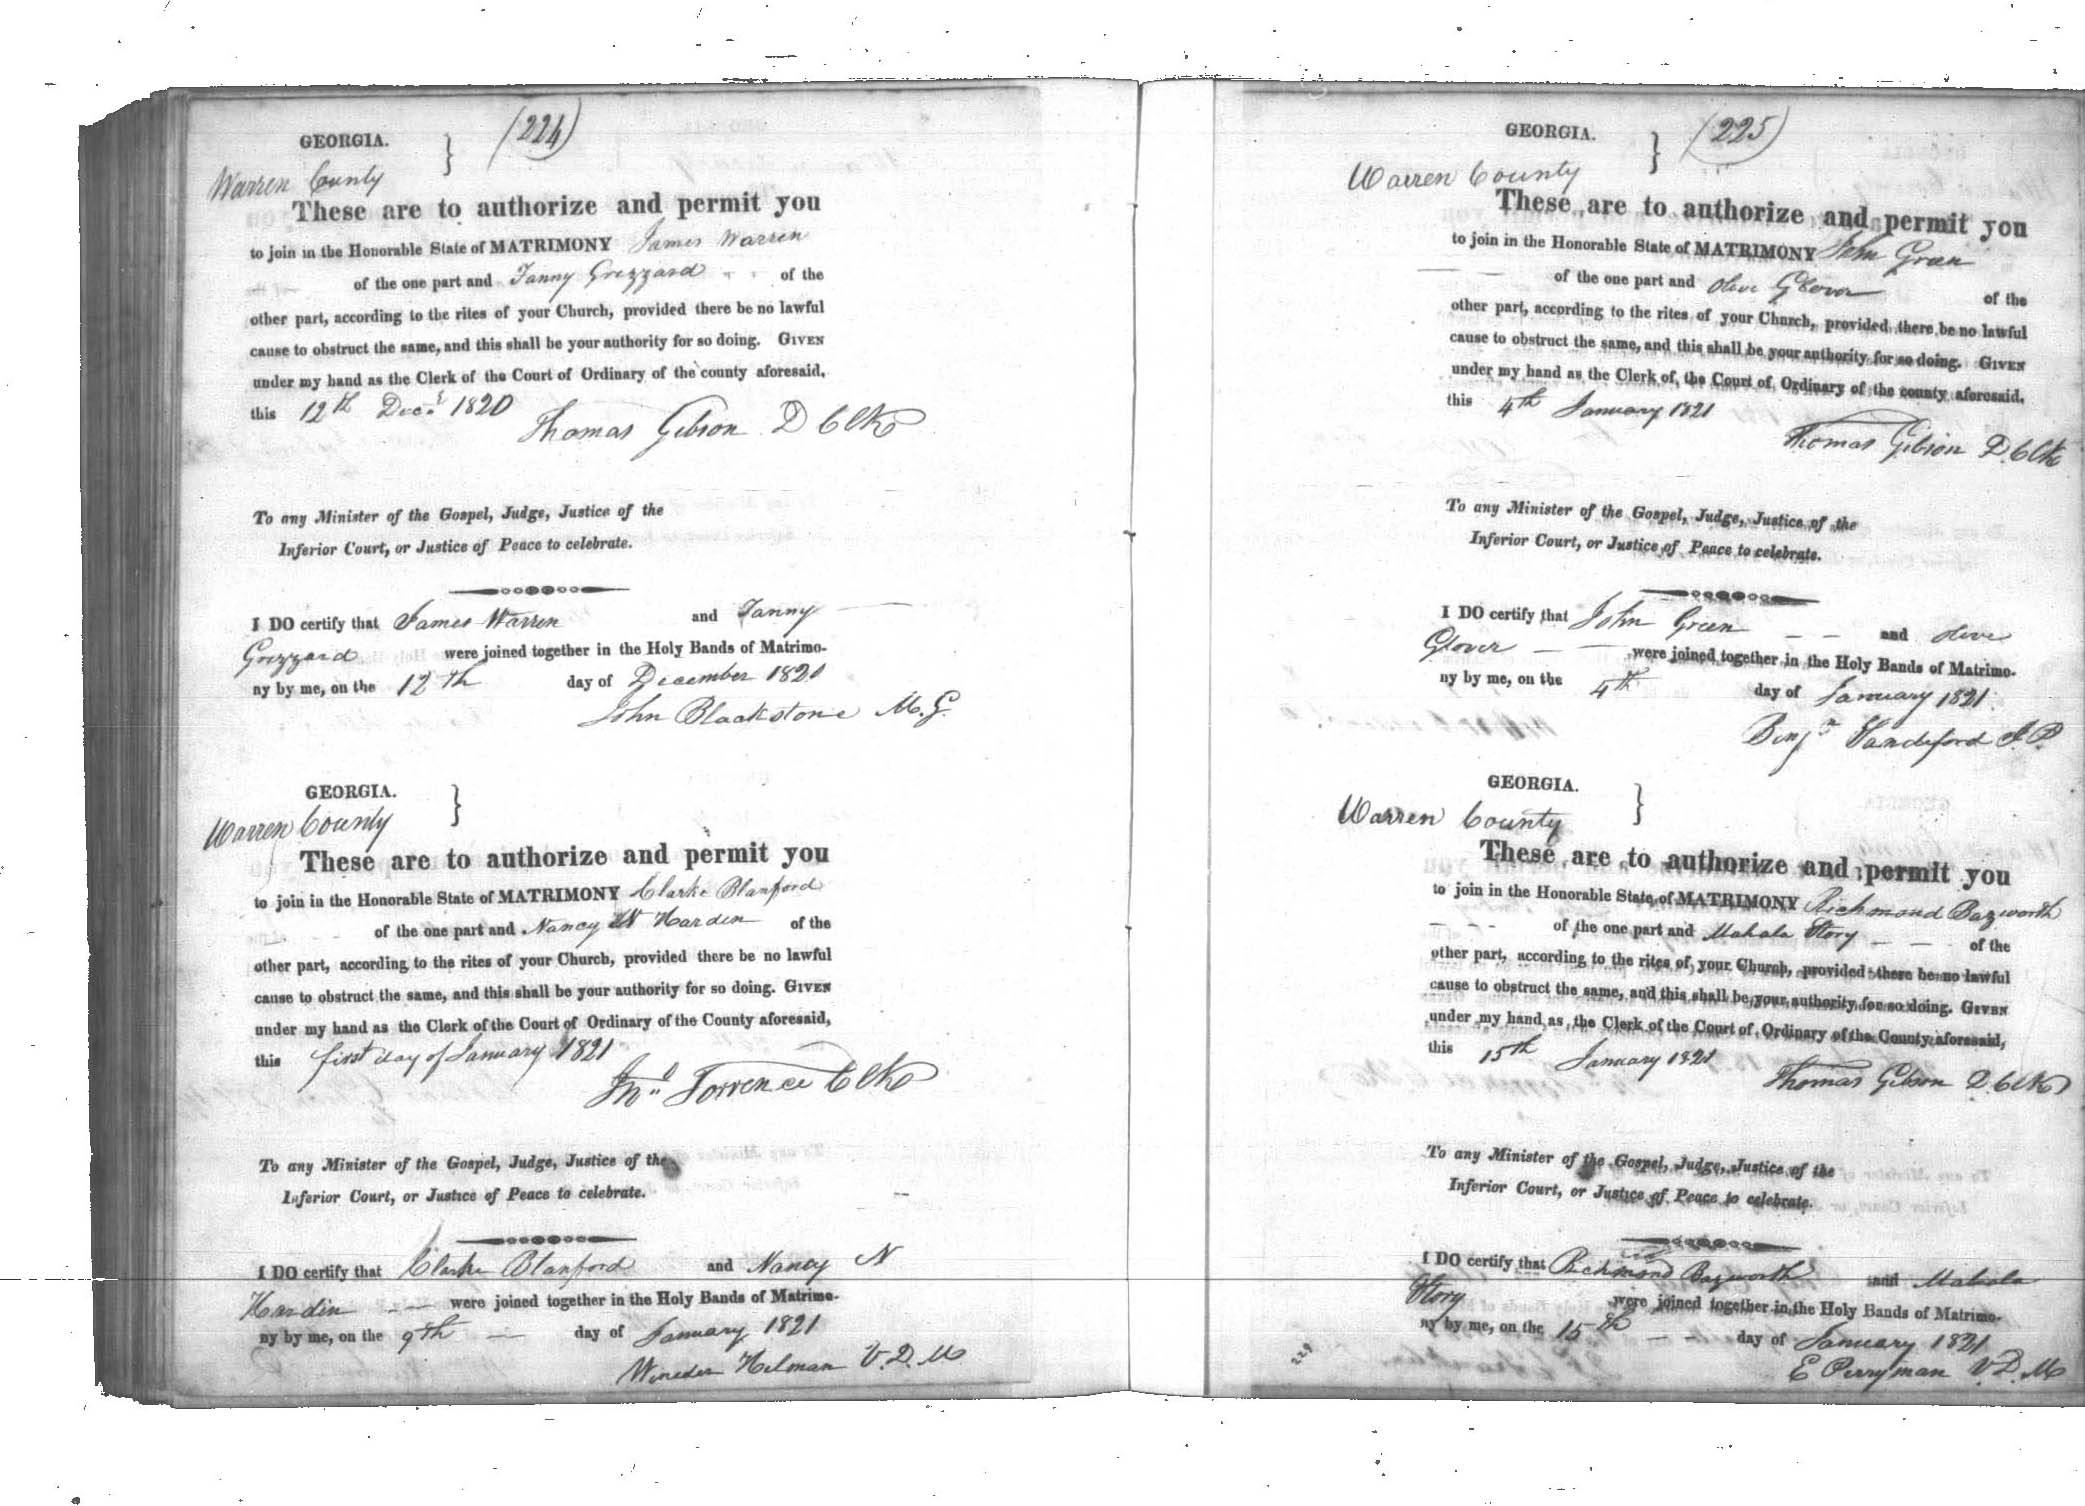 (224)
GEORGIA. }
Warren County
These are to authorize and permit you
to join in the Honorable State of MATRIMONY James Warren
of the one part and Fanny Grizzard of the
other part, according to the rites of your Church, provided there be no lawful
cause to obstruct the same, and this shall be your authority for so doing. GIVEN
under my hand as the Clerk of the Court of Ordinary of the county aforesaid,
this 12th Decr. 1820
Thomas Gibson D Clk
To any Minister of the Gospel, Judge, Justice of the
Inferior Court, or Justice of Peace to celebrate.
I DO certify that James Warren and Fanny
Grizzard were joined together in the Holy Bands of Matrimo-
ny by me, on the 12th day of December 1820
John Blackstone M.G.
GEORGIA. }
Warren County
These are to authorize and permit you
to join in the Honorable State of MATRIMONY Clarke Blanford
of the one part and Nancy N Hardin of the
other part, according to the rites of your Church, provided there be no lawful
cause to obstruct the same, and this shall be your authority for so doing. GIVEN
under my hand as the Clerk of the Court of Ordinary of the County aforesaid,
this first day of January 1821
Jno. Torrence Clk
To any Minister of the Gospel, Judge, Justice of the
Inferior Court, or Justice of Peace to celebrate.
I DO certify that Clarke Blanford and Nancy N
Hardin — — were joined together in the Holy Bands of Matrimo-
ny by me, on the 9th — day of January 1821
Hilman V.D.M
(225)
GEORGIA. }
Warren County
These are to authorize and permit you
to join in the Honorable State of MATRIMONY John Green
— — of the one part and Olive Glover of the
other part, according to the rites of your Church, provided there be no lawful
cause to obstruct the same, and this shall be your authority for so doing. GIVEN
under my hand as the Clerk of the Court of Ordinary of the county aforesaid,
this 4th January 1821
Thomas Gibson D. Clk
To any Minister of the Gospel, Judge, Justice of the
Inferior Court, or Justice of Peace to celebrate.
I DO certify that John Green — — and Olive
Glover — — were joined together in the Holy Bands of Matrimo-
ny by me, on the 4th day of January 1821.
Benjn Sandeford J.P.
GEORGIA. }
Warren County
These are to authorize and permit you
to join in the Honorable State of MATRIMONY Richmond Bazworth
— — - of the one part and Mahala Story — — of the
other part, according to the rites of your Church, provided there be no lawful
cause to obstruct the same, and this shall be your authority for so doing. GIVEN
under my hand as the Clerk of the Court of Ordinary of the County aforesaid,
this 15th January 1821
Thomas Gibson D. Clk
To any Minister of the Gospel, Judge, Justice of the
Inferior Court, or Justice of Peace to celebrate.
I DO certify that Richmond Bazworth and Mahala
Story were joined together in the Holy Bands of Matrimo-
ny by me, on the 15th — — day of January 1821
E Perryman V.D.M